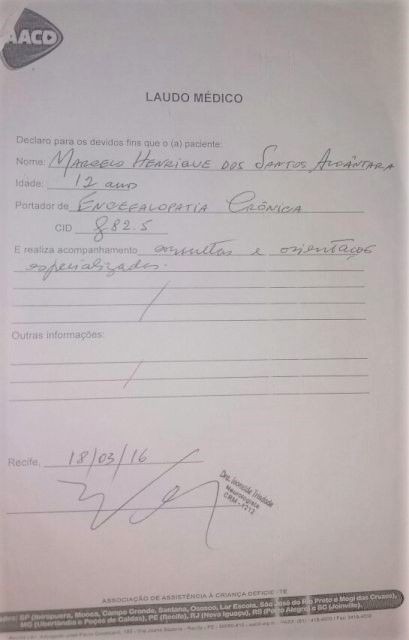 AACD
LAUDO MÉDICO
Declaro para os devidos fins que o (a) paciente:
Nome: MARCELO HENRIQUE DOS SANTOS ALCÂNTARA
Idade: 12 anos
Portador de ENCEFALOPATIA CRÔNICA
CID G82.5
E realiza acompanhamento consultas e orientações
especializadas.
Outras informações:
Recife, 18/03/16
Neurologista
ASSOCIAÇÃO DE ASSISTÊNCIA À CRIANÇA DEFICIE TE
SP (Ibirapuera, Mooca, Campo Grande, Santana, Osasco, Lar Escola, São José do Rio Preto e Mogi das Cruzes),
MG (Uberlândia e Poços de Caldas), PE (Recife), RJ (Nova Iguaçu), RS (Porto Alegre) e SC (Joinville).